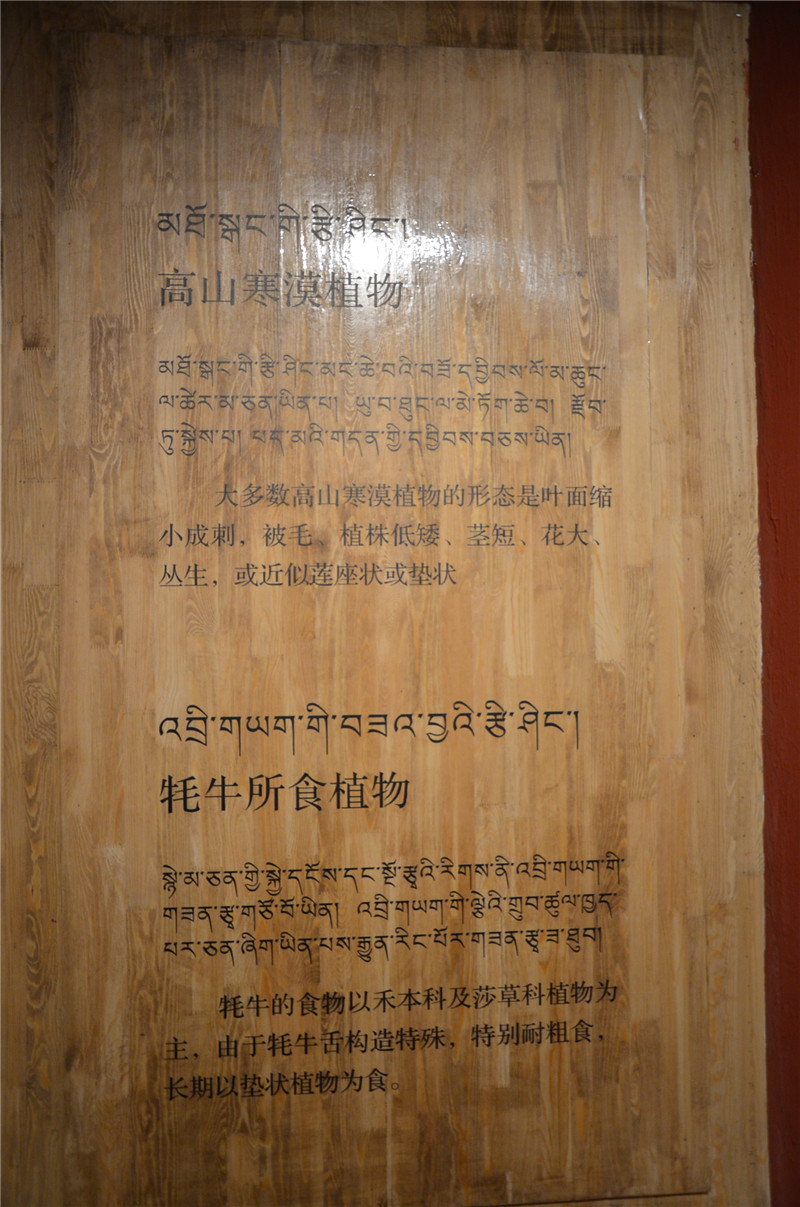 མཐོ་སྒང་གི་རྩི་ཤིང་།
高山寒漠植物
མཐོ་སྒང་གི་རྩི་ཤིང་མང་ཆེ་བའི་བཟོ་དབྱིབས་ལོ་མ་ཆུང་
ལ་ཚེར་མ་ཅན་ཡིན་པ། ཡུ་བ་ཐུང་ལ་མེ་ཏོག་ཆེ་བ། རྫོབ་
ཏུ་སྐྱེས་པ། པད་མའི་གདན་གྱི་དབྱིབས་བཅས་ཡིན།
大多数高山寒漠植物的形态是叶面缩
小成刺，被毛、植株低矮、茎短、花大、
丛生，或近似莲座状或垫状
འབྲི་གཡག་གི་བཟའ་བྱའི་རྩི་ཤིང་།
牦牛所食植物
སྙེ་མ་ཅན་གྱི་སྐྱེ་དངོས་དང་སྔོ་རྩྭའི་རིགས་ནི་འབྲི་གཡག་གི་
གཟན་རྩྭ་གཙོ་བོ་ཡིན། འབྲི་གཡག་གི་ལྕེའི་གྲུབ་ཚུལ་ཁྱད་
པར་ཅན་ཞིག་ཡིན་པས་རྒྱུན་རིང་པོར་གཟན་རྩྭ་ཟ་ཐུབ།
牦牛的食物以禾本科及莎草科植物为
主，由于牦牛舌构造特殊，特别耐粗食，
长期以垫状植物为食。